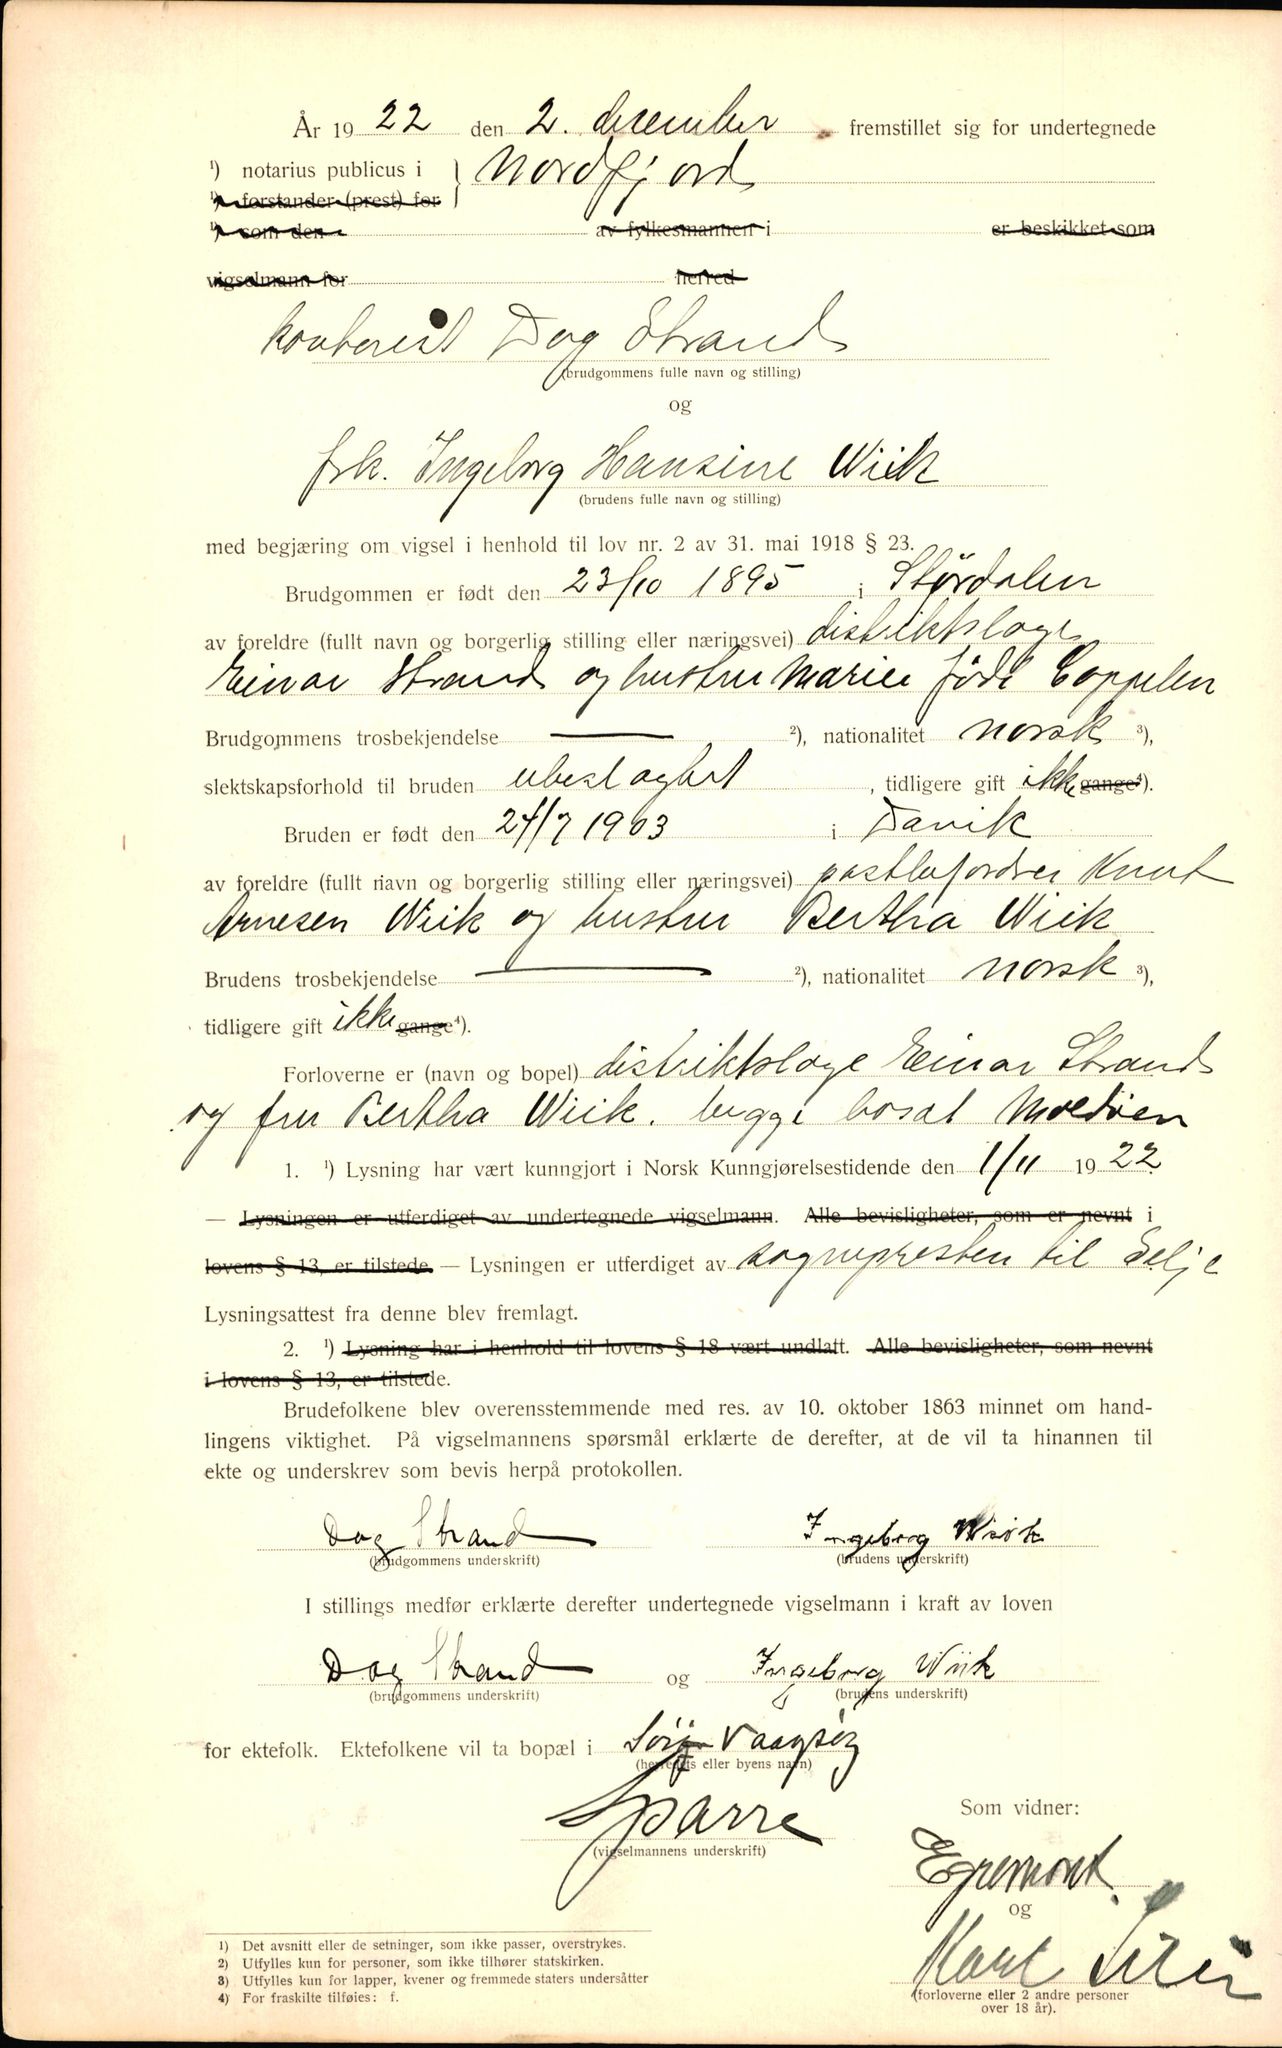 År 19 22 den 2. december fremstillet sig for undertegnede
¹) notarius publicus i } Nordfjord
¹) forstander (prest) for
¹) som den av fylkesmannen i er beskikket som
vigselmann for herred
kontorist Dag Strand
(brudgommens fulle navn og stilling)
og
frk. Ingeborg Hansine Wiik
(brudens fulle navn og stilling)
med begjæring om vigsel i henhold til lov nr. 2 av 31. mai 1918 § 23.
Brudgommen er født den 23/10 1895 i Størdalen
av foreldre (fullt navn og borgerlig stilling eller næringsvei) distriktslæge
Einar Strand og hustru Marie født Coppelen
Brudgommens trosbekjendelse — ²), nationalitet norsk ³),
slektskapsforhold til bruden ubeslægtet, tidligere gift ikke gange⁴).
Bruden er født den 24/7 1903 i Davik
av foreldre (fullt navn og borgerlig stilling eller næringsvei) postbefordrer Knut
Arnesen Wiik og hustru Bertha Wiik
Brudens trosbekjendelse — ²), nationalitet norsk ³),
tidligere gift ikke gange⁴).
Forloverne er (navn og bopel) distriktslæge Einar Strand
og fru Bertha Wiik. begge bosat Moldøen
1. ¹) Lysning har vært kunngjort i Norsk Kunngjørelsestidende den 1/11 19 22
— Lysningen er utferdiget av undertegnede vigselmann. Alle bevisligheter, som er nevnt i
lovens § 13, er tilstede. — Lysningen er utferdiget av sognepresten til Selje
Lysningsattest fra denne blev fremlagt.
2. ¹) Lysning har i henhold til lovens § 18 vært undlatt. Alle bevisligheter, som nevnt
i lovens § 13, er tilstede.
Brudefolkene blev overensstemmende med res. av 10. oktober 1863 minnet om hand-
lingens viktighet. På vigselmannens spørsmål erklærte de derefter, at de vil ta hinannen til
ekte og underskrev som bevis herpå protokollen.
Dag Strand Ingeborg Wiik
(brudgommens underskrift) (brudens underskrift)
I stillings medfør erklærte derefter undertegnede vigselmann i kraft av loven
Dag Strand og Ingeborg Wiik
(brudgommens underskrift) (brudens underskrift)
for ektefolk. Ektefolkene vil ta bopæl i Vaagsøy
(herredets eller byens navn)
Sparre
(vigselmannens underskrift)
Som vidner:
og
Karl
(forloverne eller 2 andre personer
over 18 år).
1) Det avsnitt eller de setninger, som ikke passer, overstrykes.
2) Utfylles kun for personer, som ikke tilhører statskirken.
3) Utfylles kun for lapper, kvener og fremmede staters undersåtter
4) For fraskilte tilføies: f.